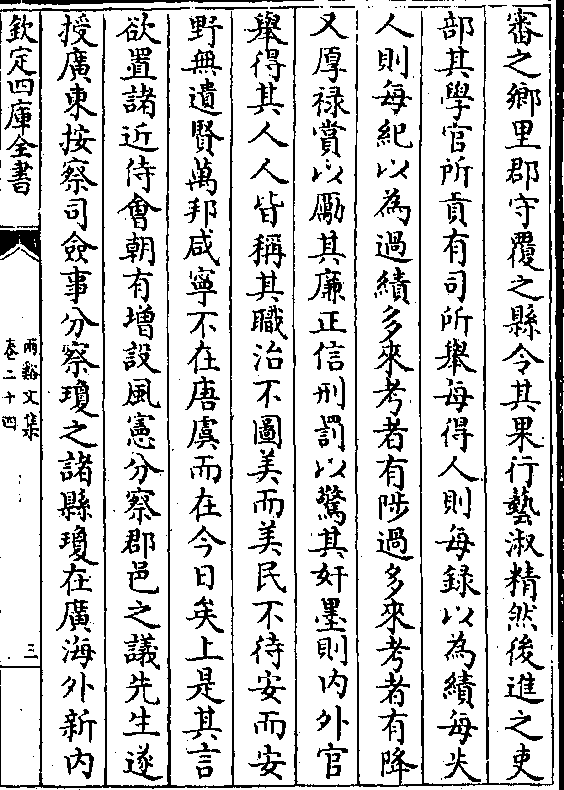 審之鄉里郡守覆之縣令其果行藝淑精然後進之吏
部其學官所貢有司所舉每得人則每録以為績每失
人則每紀以為過績多來考者有陟過多來考者有降
又厚禄賞以勵其廉正信刑罰以驚其奸墨則内外官
舉得其人人皆稱其職治不圖美而美民不待安而安
野無遺賢萬邦咸寧不在唐虞而在今日矣上是其言
欲置諸近侍會朝有增設風憲分察郡邑之議先生遂
授廣東按察司僉事分察瓊之諸縣瓊在廣海外新内
欽定四庫全書
兩谿文集
卷二十四
三